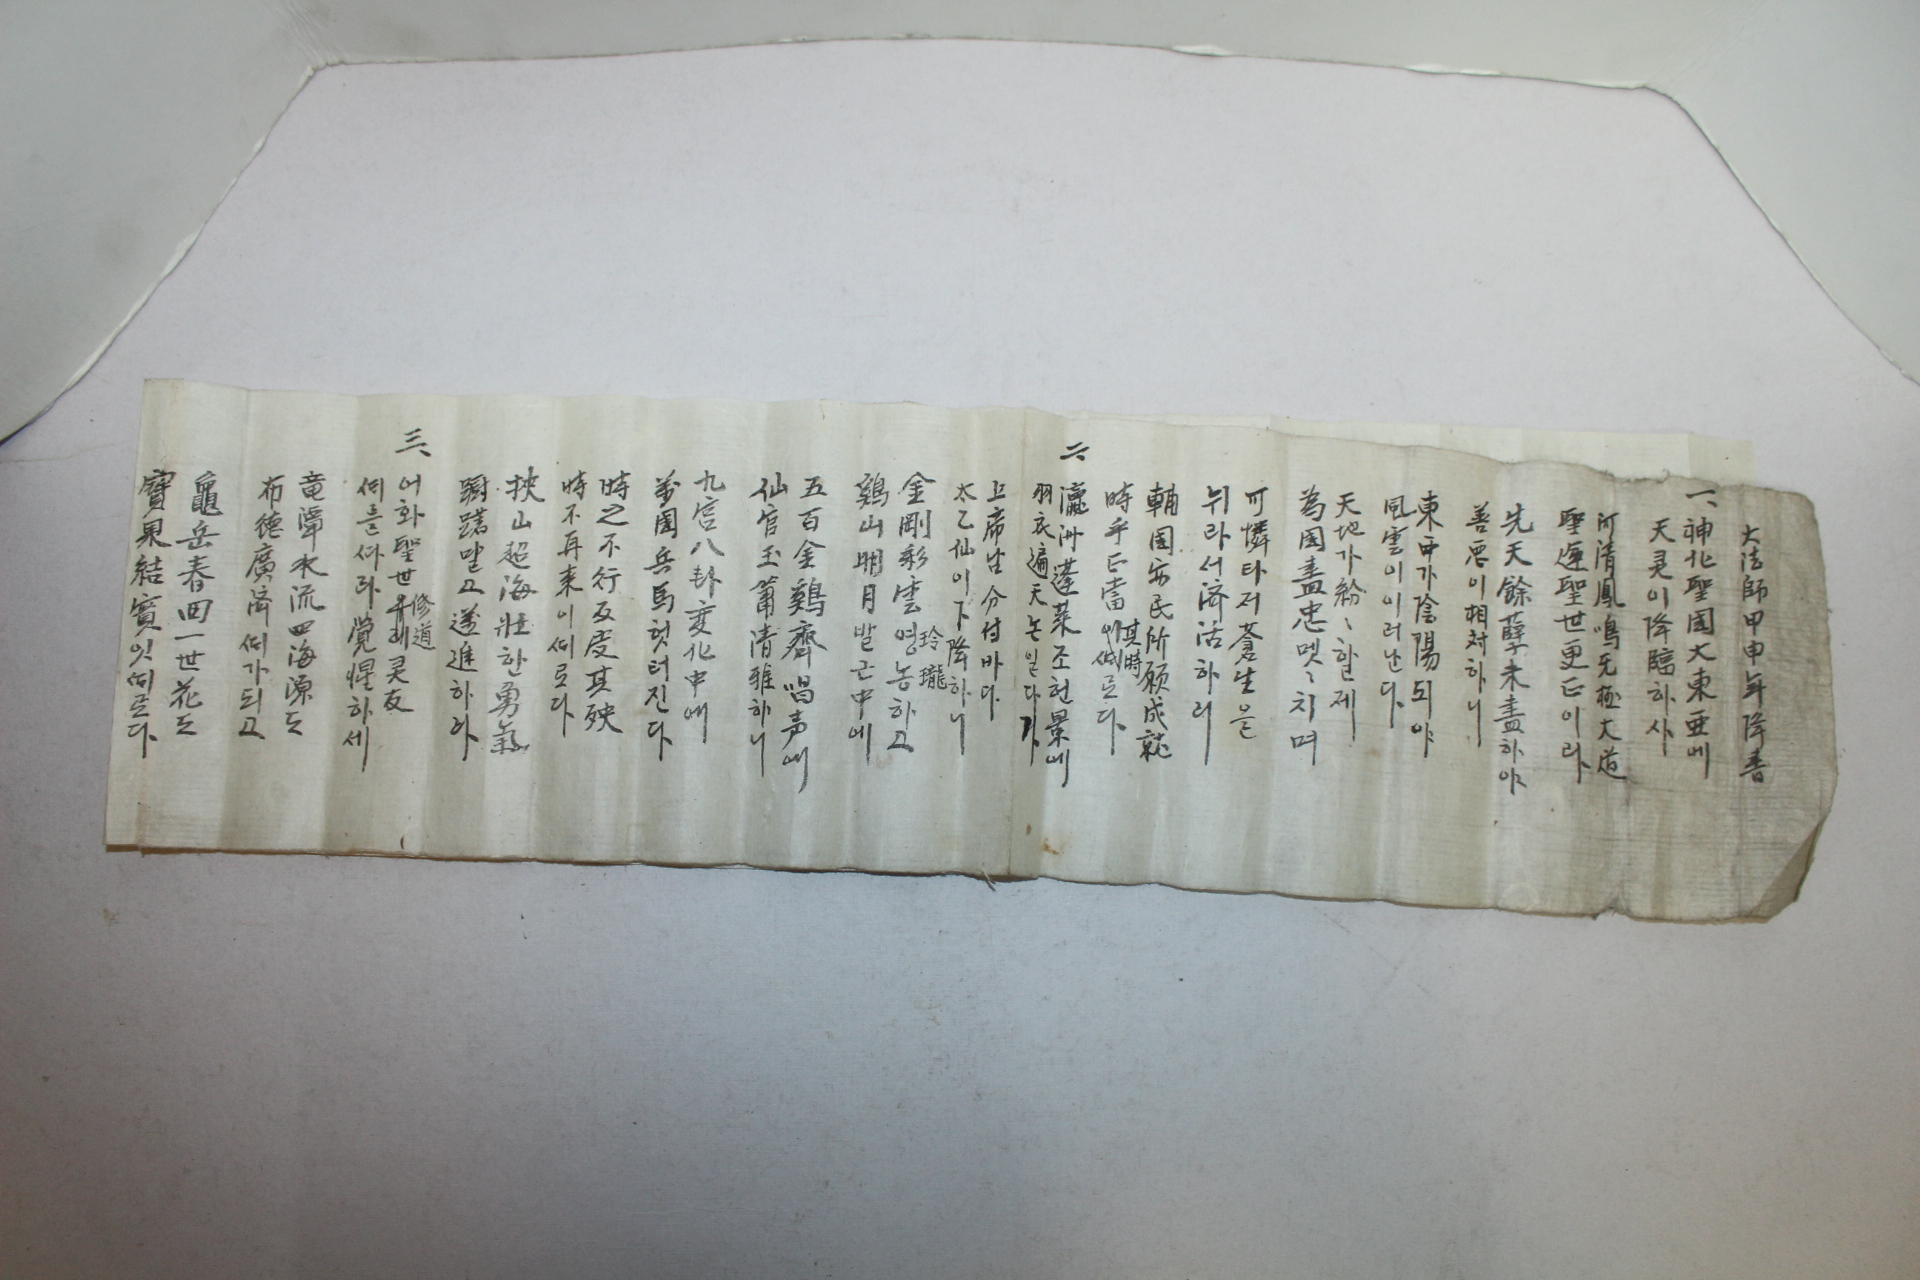 大法師甲申年降書
一、神化聖國大東亜에
天灵이降臨하사
河清鳳鳴无極大道
聖運聖世更正이라
先天餘孽未盡하야
善悪이相対하니
東西가陰陽되야
風雲이이러난다
天地가紛〻할제
為国盡忠몟〻치며
可憐타저蒼生은
뉘라서済活하리
輔国安民所願成就
時乎正當其時로다
二、
瀛洲蓬萊조헌景에
羽衣遍天논일다가
上帝님分付바다
太乙仙이下降하니
金剛彩雲영농하고
玲瓏
鷄山明月발근中에
五百金鷄齊唱声에
仙官玉簫清雅하니
九宮八卦変化中에
萬国兵馬헛터진다
時之不行反度其殃
時不再来이때로다
挾山超海壯한勇氣
躕躇말고遂進하라
三、
어화聖世灵友
修道
때를따라覚惺하세
竜潭水流四海源도
布徳廣済때가되고
龜岳春回一世花도
寶果結實잇때로다